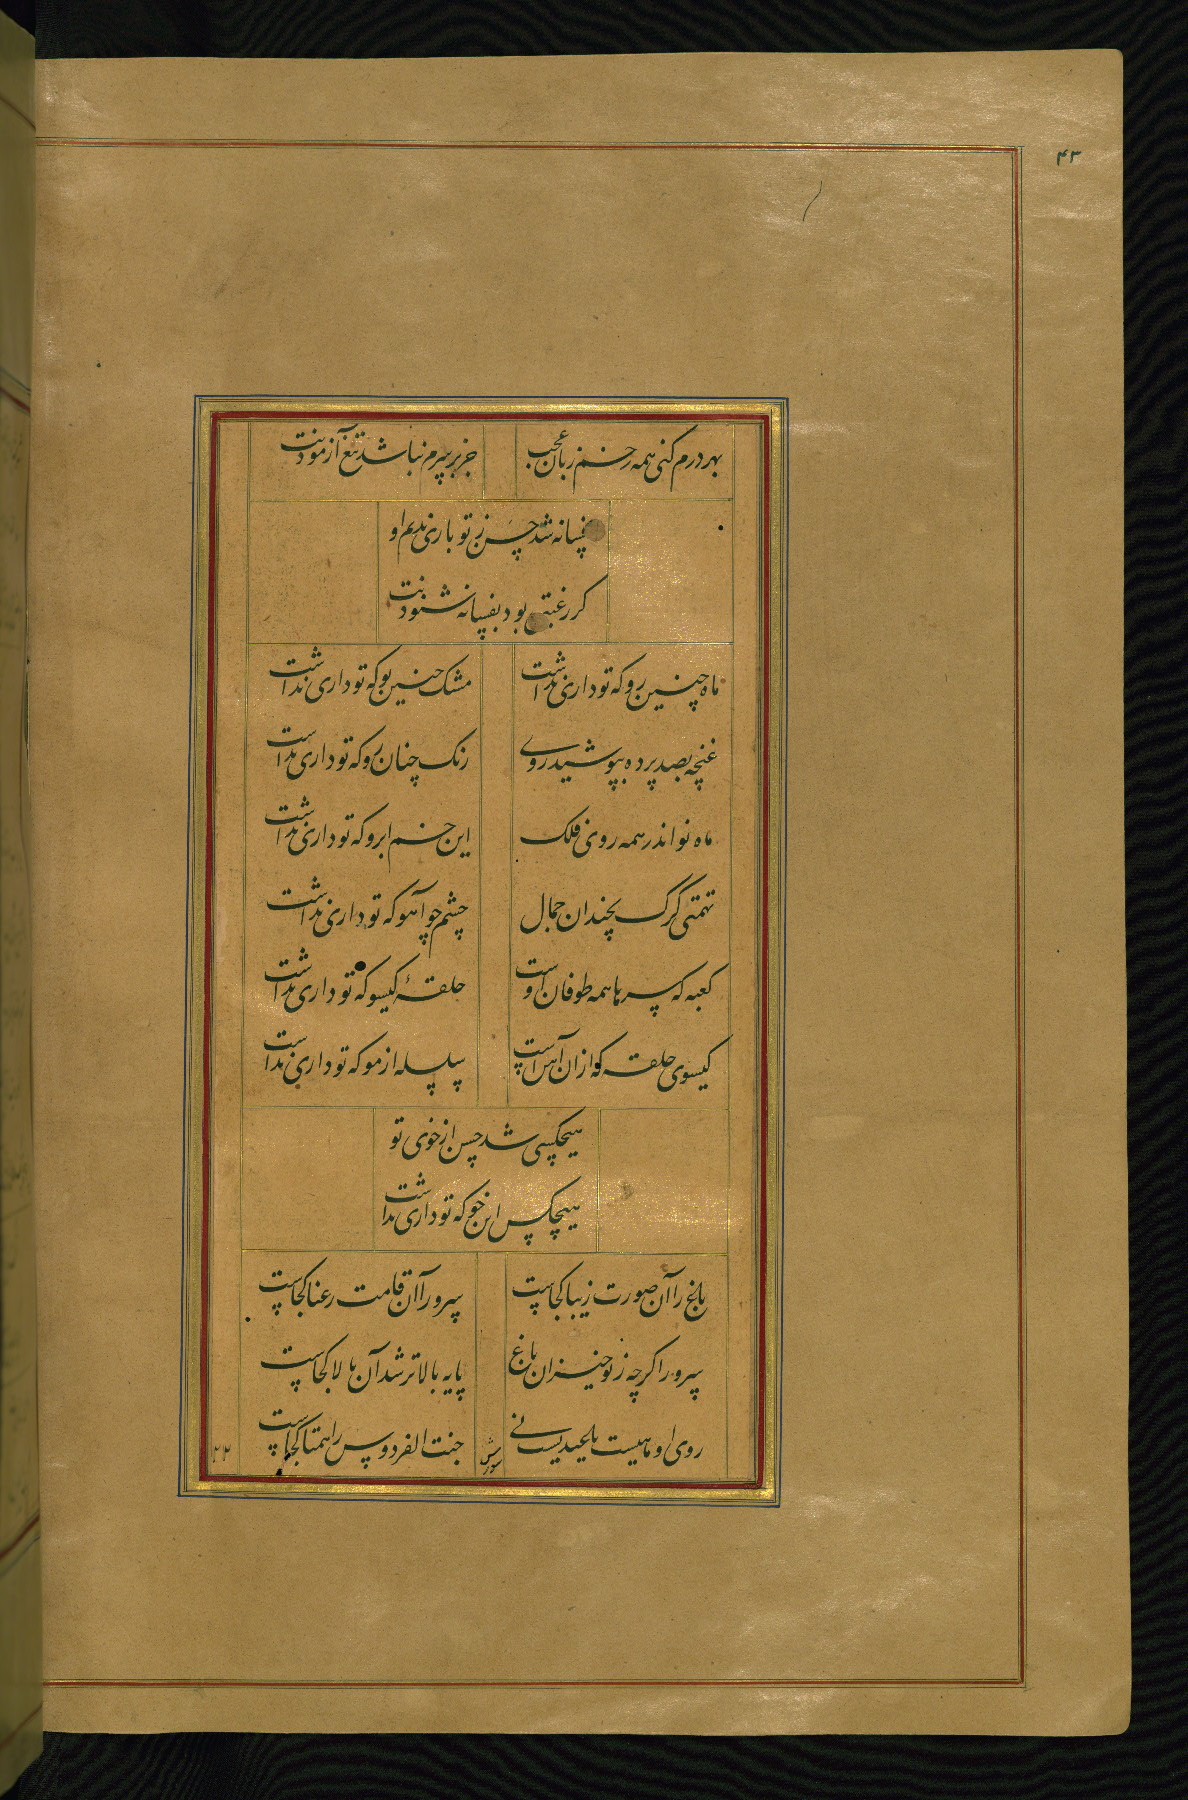 ۴۳
بهر درم کنی همه زخم زبان عجب جز بر سرم نباشد تیغ آزمودنت
فسانه شد حسن ز تو باری ندیم او
کر رغبتی بود بفسانه شنودنت
ماه چنین رو که تو داری نداشت مشک چنین بو که تو داری نداشت
غنچه بصد پرده بپوشید روی رنک چنان رو که تو داری نداشت
ماه نو اندر همه روی فلک این خم ابرو که تو داری نداشت
تهمتی کرک بچندان جمال چشم چو آهو که تو داری نداشت
کعبه که سرها همه طوفان اوست حلقهٔ کیسو که تو داری نداشت
کیسوی حلقه که از ان آهن است سلسله از مو که تو داری نداشت
هیچکسی شد حسن از خوی تو
هیچکس این خو که تو داری نداشت
باغ را آن صورت زیبا کجاست سرو را آن قامت رعنا کجاست
سرو را کرچه ز نوخیزان باغ پایه بالاتر شد آن بالا کجاست
روی او ماهیست جنت الفردوس را همتا کجاست
سورش
۲۲